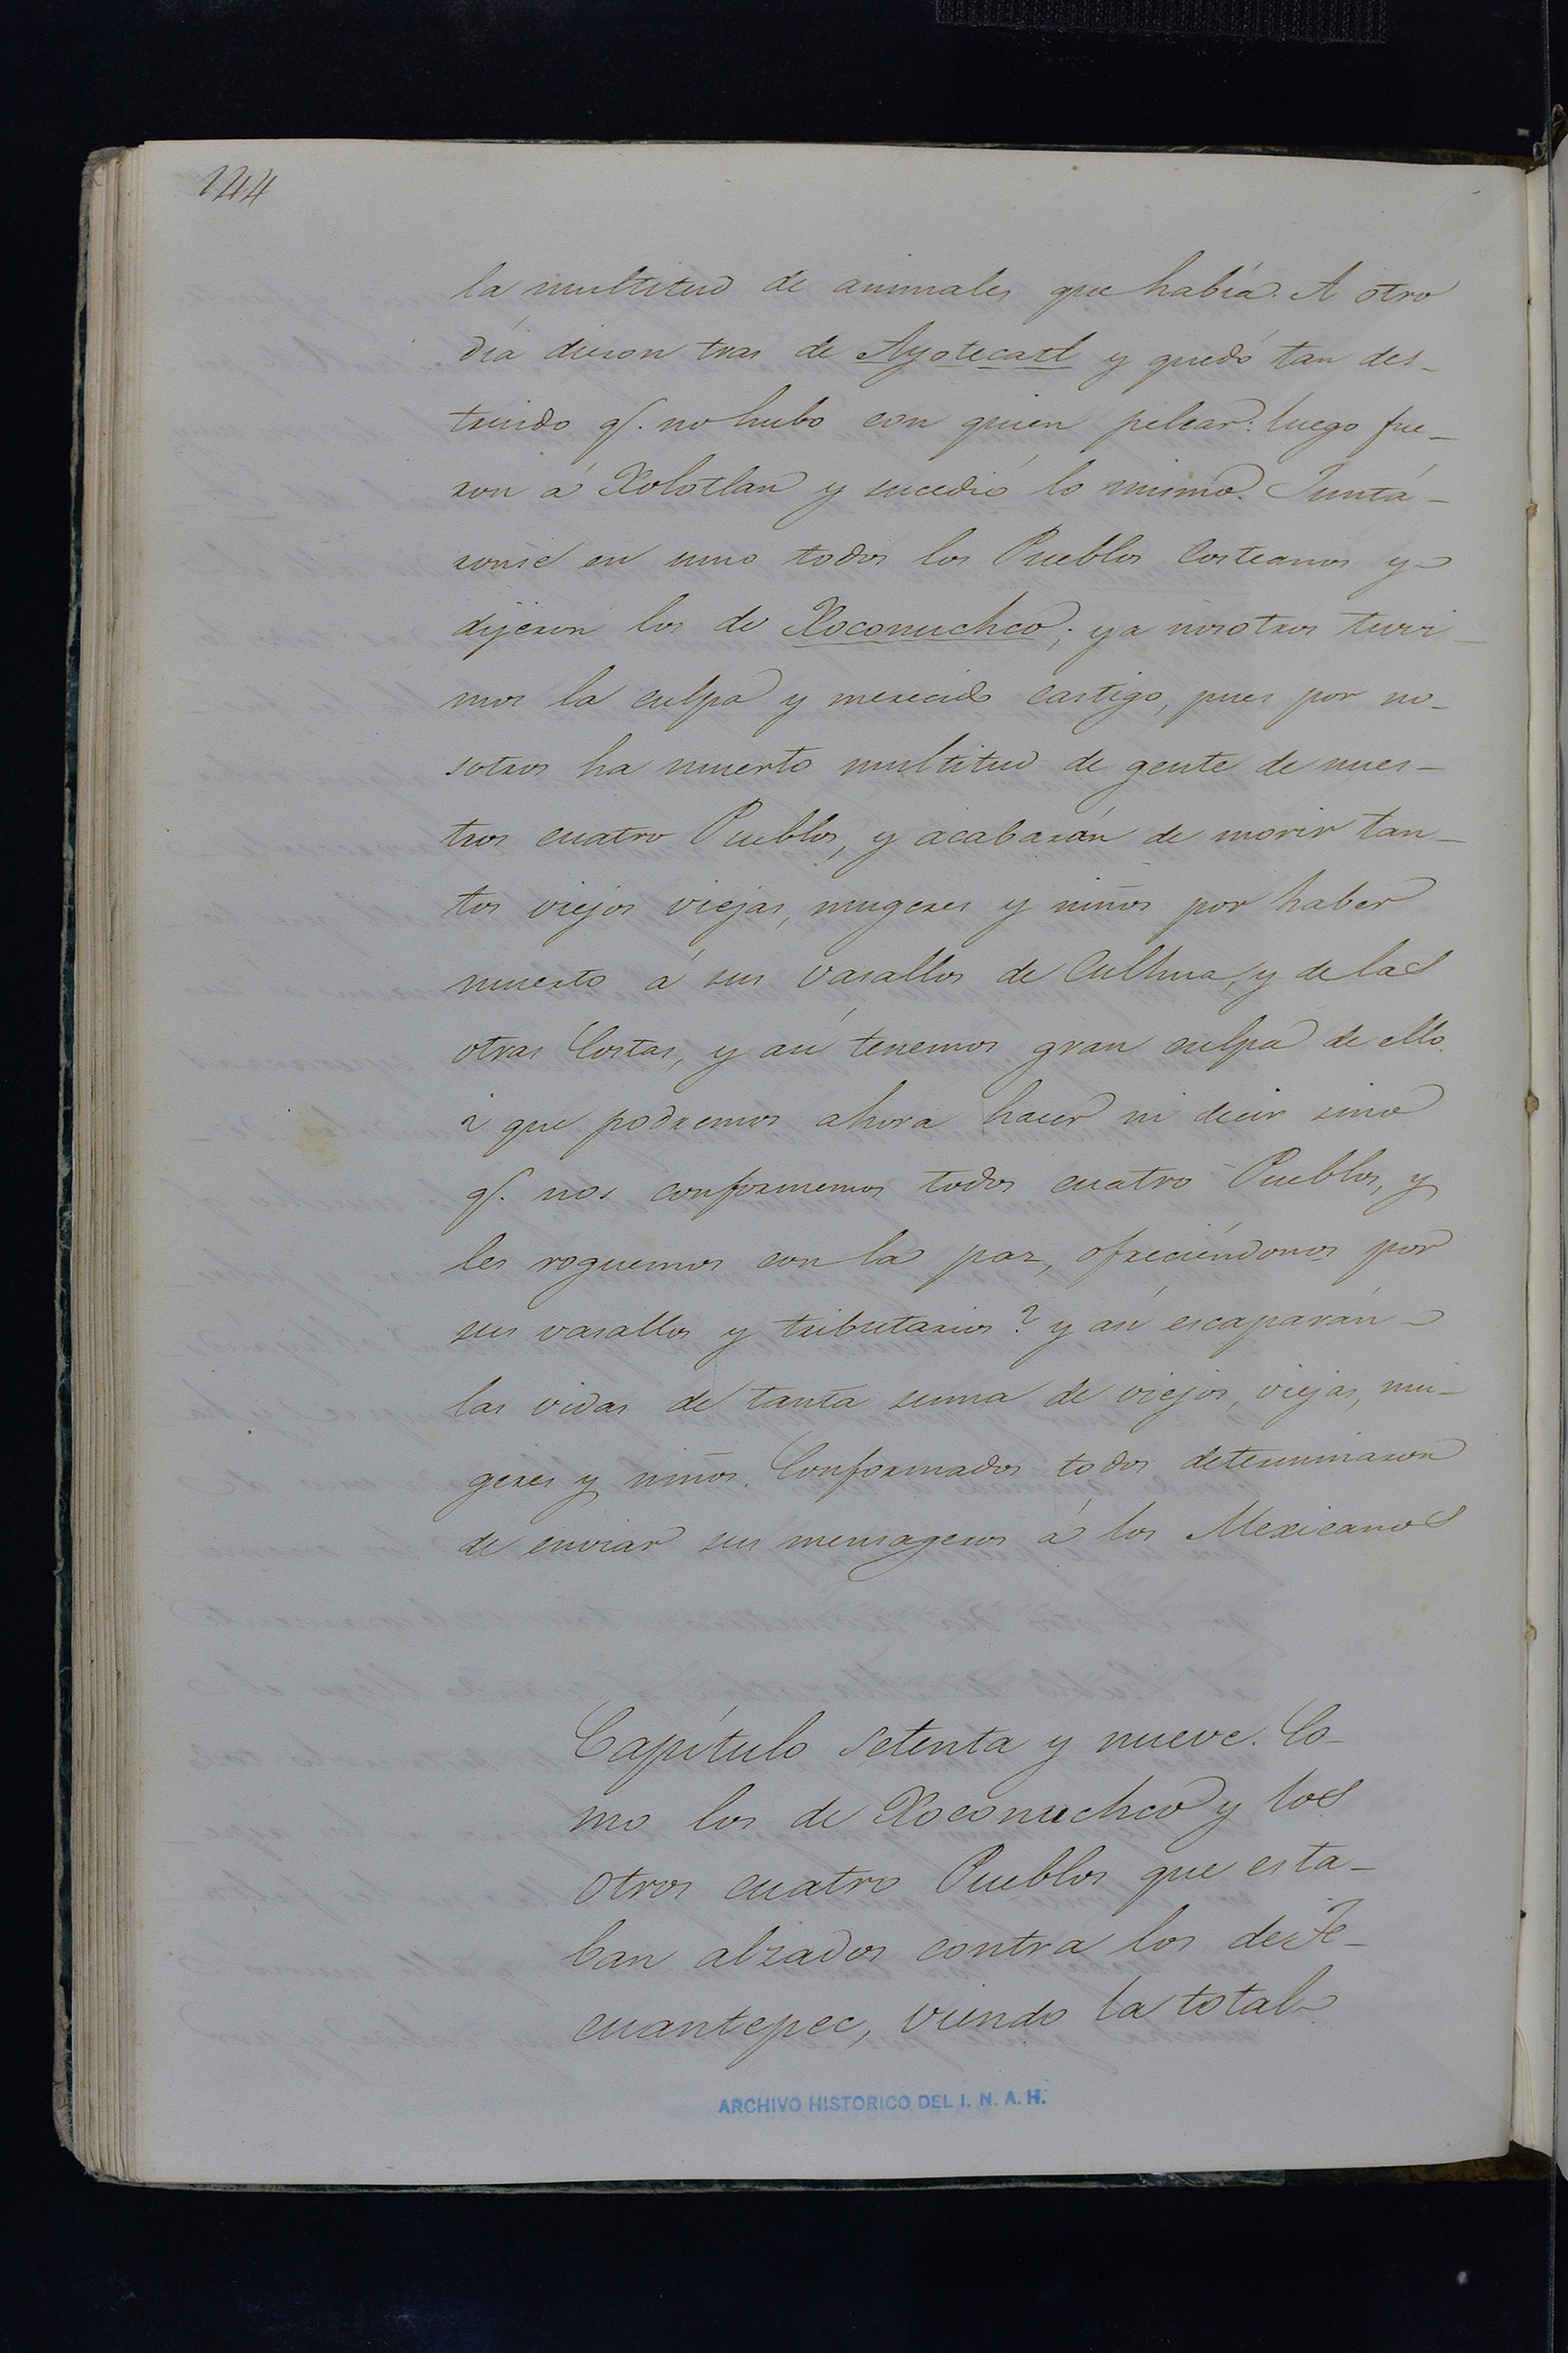 144
la multitud de animales que había. A otro
día dieron tras de Ayotecatl y quedó tan des-
truido q. no hubo con quien pelear: luego fue-
ron á Xolotlan y sucedió lo mismo. Juntá-
ronse en uno todos los Pueblos Costeanos y
dijeron los de Xoconuchco; ya nosotros tuvi-
mos la culpa y merecido castigo, pues por no-
sotros ha muerto multitud de gente de nues-
tros cuatro Pueblos, y acabarán de morir tan-
tos viejos viejas, mugeres y niños por haber
muerto á sus vasallos de Culhua, y de las
otras Costas, y así tenemos gran culpa de ello.
¿ que podremos ahora hacer ni decir sino
q. nos conformemos todos cuatro Pueblos, y
les roguemos con la paz, ofreciéndonos por
sus vasallos y tributarios? y así escaparán
las vidas de tanta suma de viejos, viejas, mu-
geres y niños. Conformados todos determinaron
de enviar sus mensageros á los Mexicanos
Capítulo setenta y nueve. Co-
mo los de Xoconuchco y los
otros cuatro Pueblos que esta-
ban alzados contra los de Te-
cuantepec, viendo la total
ARCHIVO HISTORICO DEL I. N. A. H.